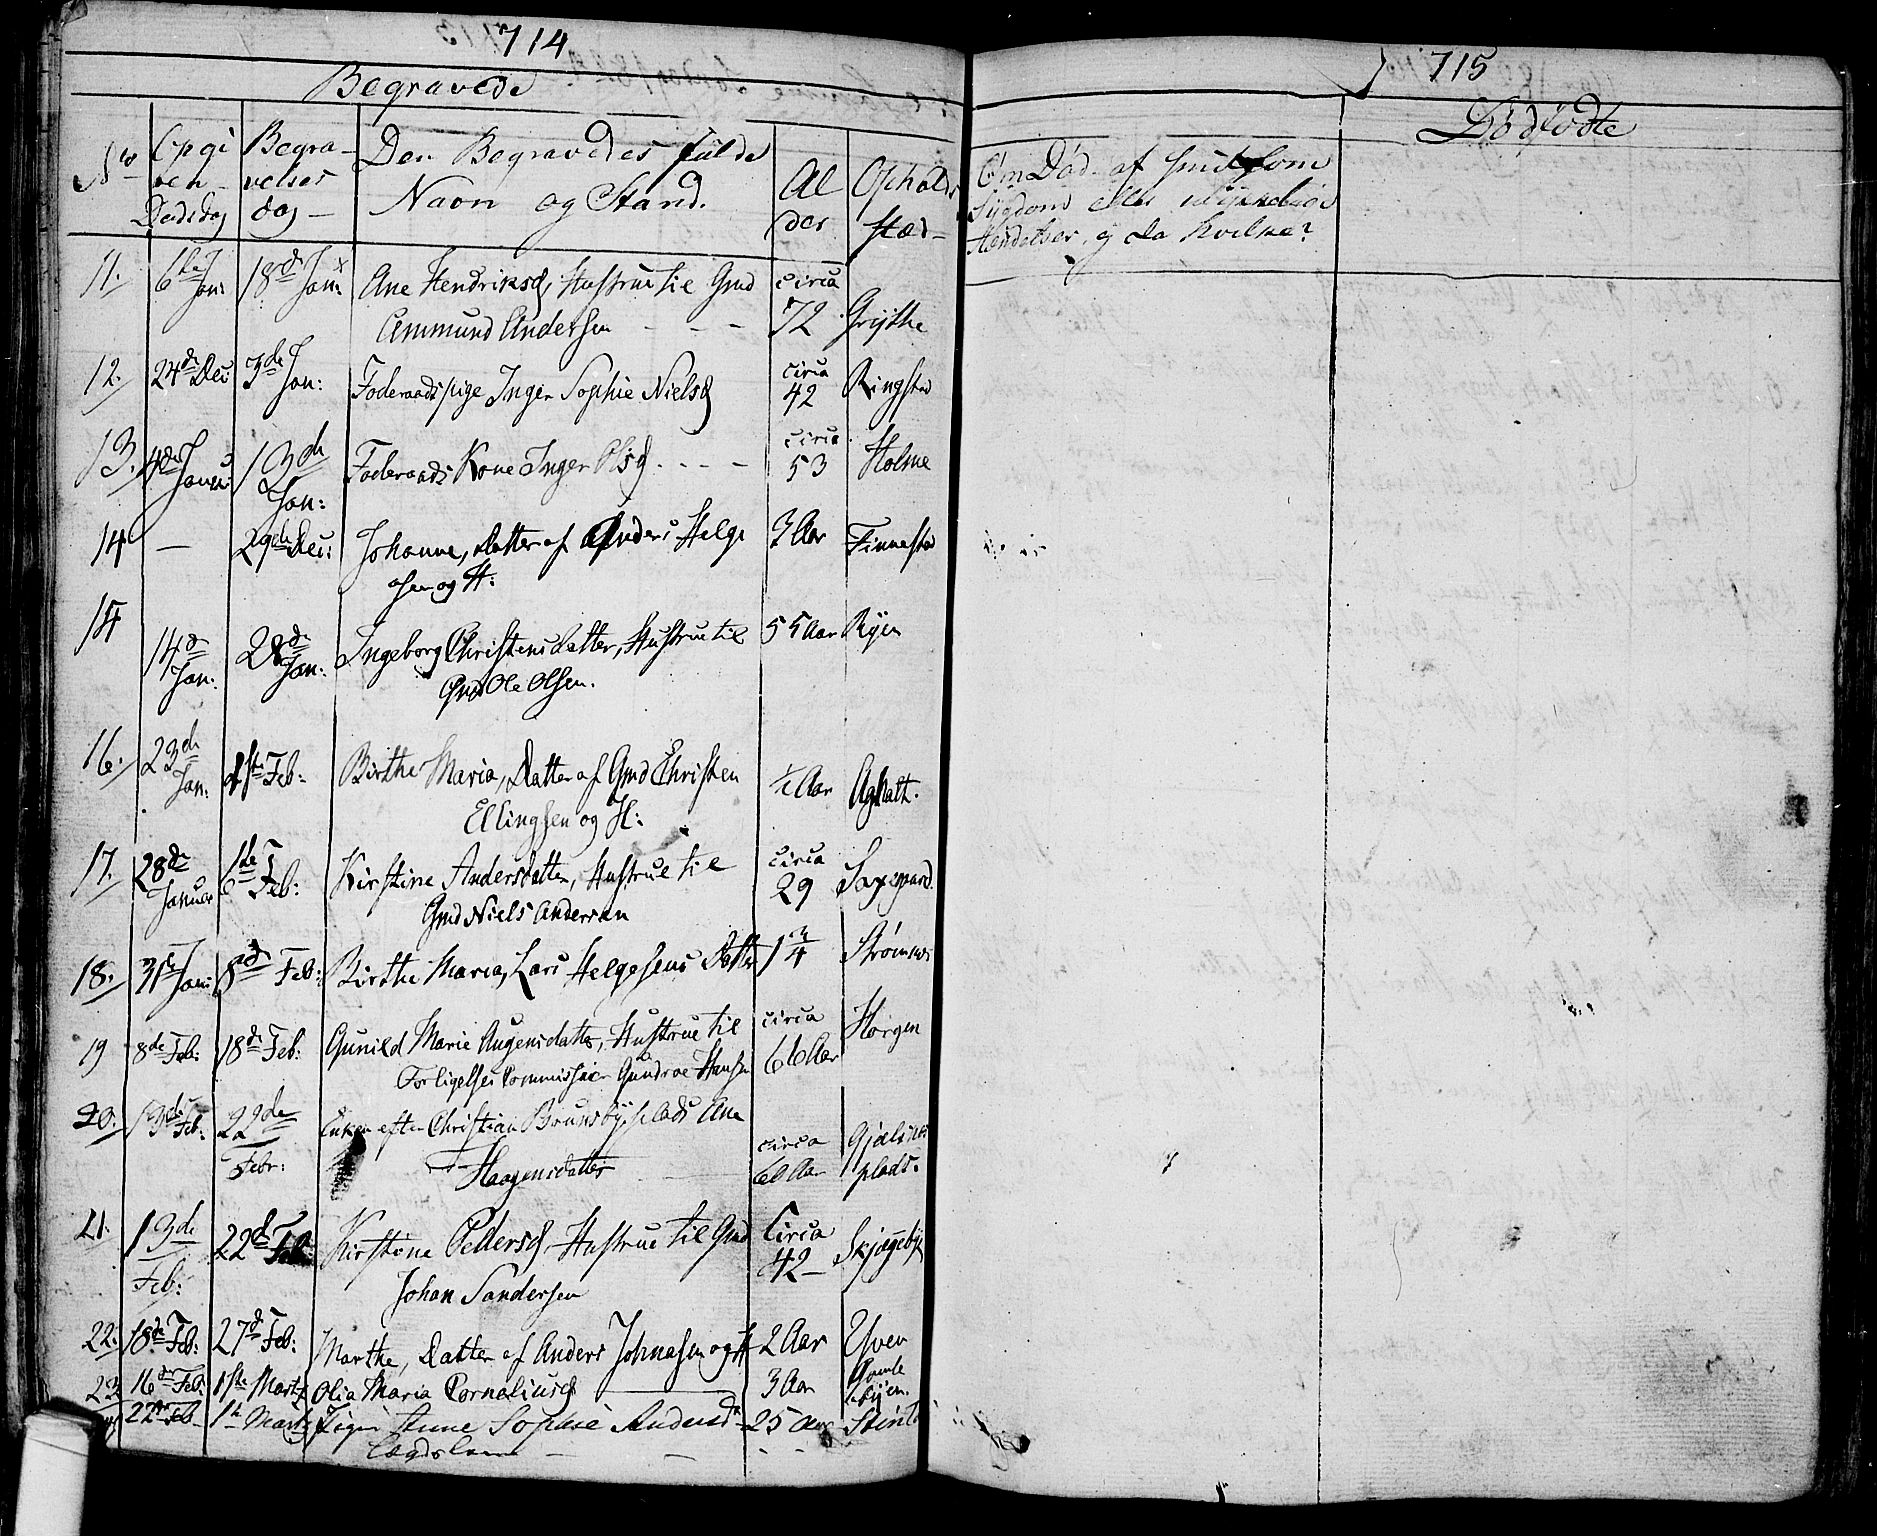 714
Begravede
No Opgi Begra- Den Begravedes fulde Al Opholds
ven velses Navn og Stand. der stæd-
Dødsdag dag-
11. 6te Jan: 18de Jan: Ane Hendriksd, Hustrue til Gmd circa
Ammund Andersen - - - 72 Grythe
12. 24de Dec: 3de Jan: Foderaadspige Inger Sophie Nielsd circa 42 Ringstad
13. 4de Januar 13de Jan: Foderaads Kone Inger Olsd. - - - circa 53 Holme
14 - 29de Dec: Johanne, datter af Anders Helge 3 Aar Finnestad
sen og H:
15 14de Jan: 28de Jan: Ingeborg Christensdatter, Hustrue til 55 Aar Ryen
Gmd Ole Olsen.
16. 23de Jan: 1ste Feb: Birthe Maria, Datter af Gmd Christen Aar
Ellingsen og H:
17. 28de Januar 6te Feb: Kirstine Andersdatter, Hustrue til circa
Gmd Niels Andersen 29 Saxegaard.
18. 31te Jan: 8de Feb: Birthe Maria, Lars Helgesens Datter 1 3/4
19 8de Feb: 18de Feb: Gunild Marie Augensdatter, Hustrue til circa Horgen
Forligelses Commissair Gundroe Hansen 66 Aar
20. 13de Feb: 22de Febr: Enken efter Christian Brunsbyeplads Ane circa
Haagensdatter 60 Aar plads.
21. 13de Feb: 22de Feb: Kirstine Pedersd Hustrue til Gmd Circa
Johan Sandersen 42 - Skjøgeby
22. 18de Feb: 27de Feb: Marthe, Datter af Anders Johnsen og H 2 Aar Yven
23 16de Feb: 1ste Martz Olia Maria Corneliusd 3 Aar Gamle Ryen.
22de Feb 1te Martz Pigen Anne Sophie Andersd - 25 Aar
Lægdslem - - -
715
Dødfødte
Om Død. af smitsom
Sygdom eller ulykkelige
Hændelser, og da hvilke?